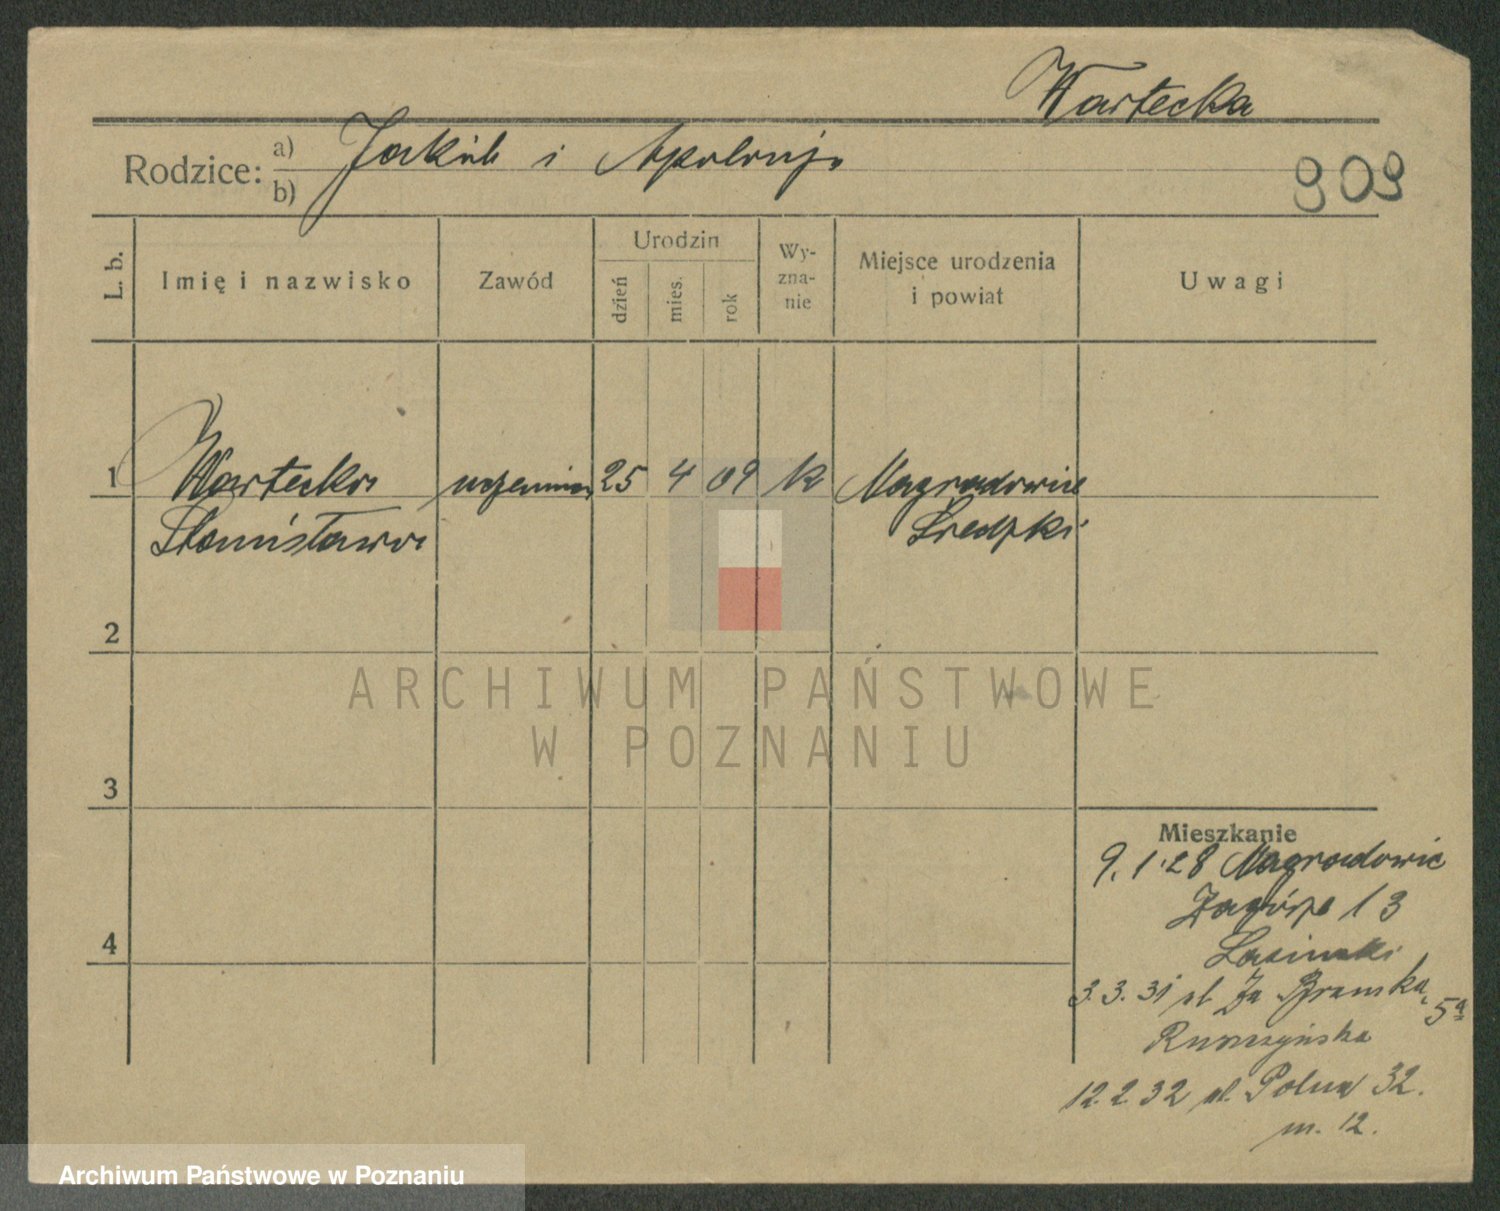 Wartecka
Rodzice: a) Jakób i Apolonja
b)
909
L. b.
Imię i nazwisko
Zawód
Urodzin
dzień
mies.
rok
Wy-
zna-
nie
Miejsce urodzenia
i powiat
Uwagi
1 Wartecka uczennica 25 4 09 k Nagradowice
Stanisława Średzki
2
3
4
Mieszkanie
9.1.28 Nagradowic
Zagórze 13
3.3.31 ul Za Bramką 5a
12.2.32 ul. Polna 32.
m. 12.
ARCHIWUM PAŃSTWOWE
W POZNANIU
Archiwum Państwowe w Poznaniu